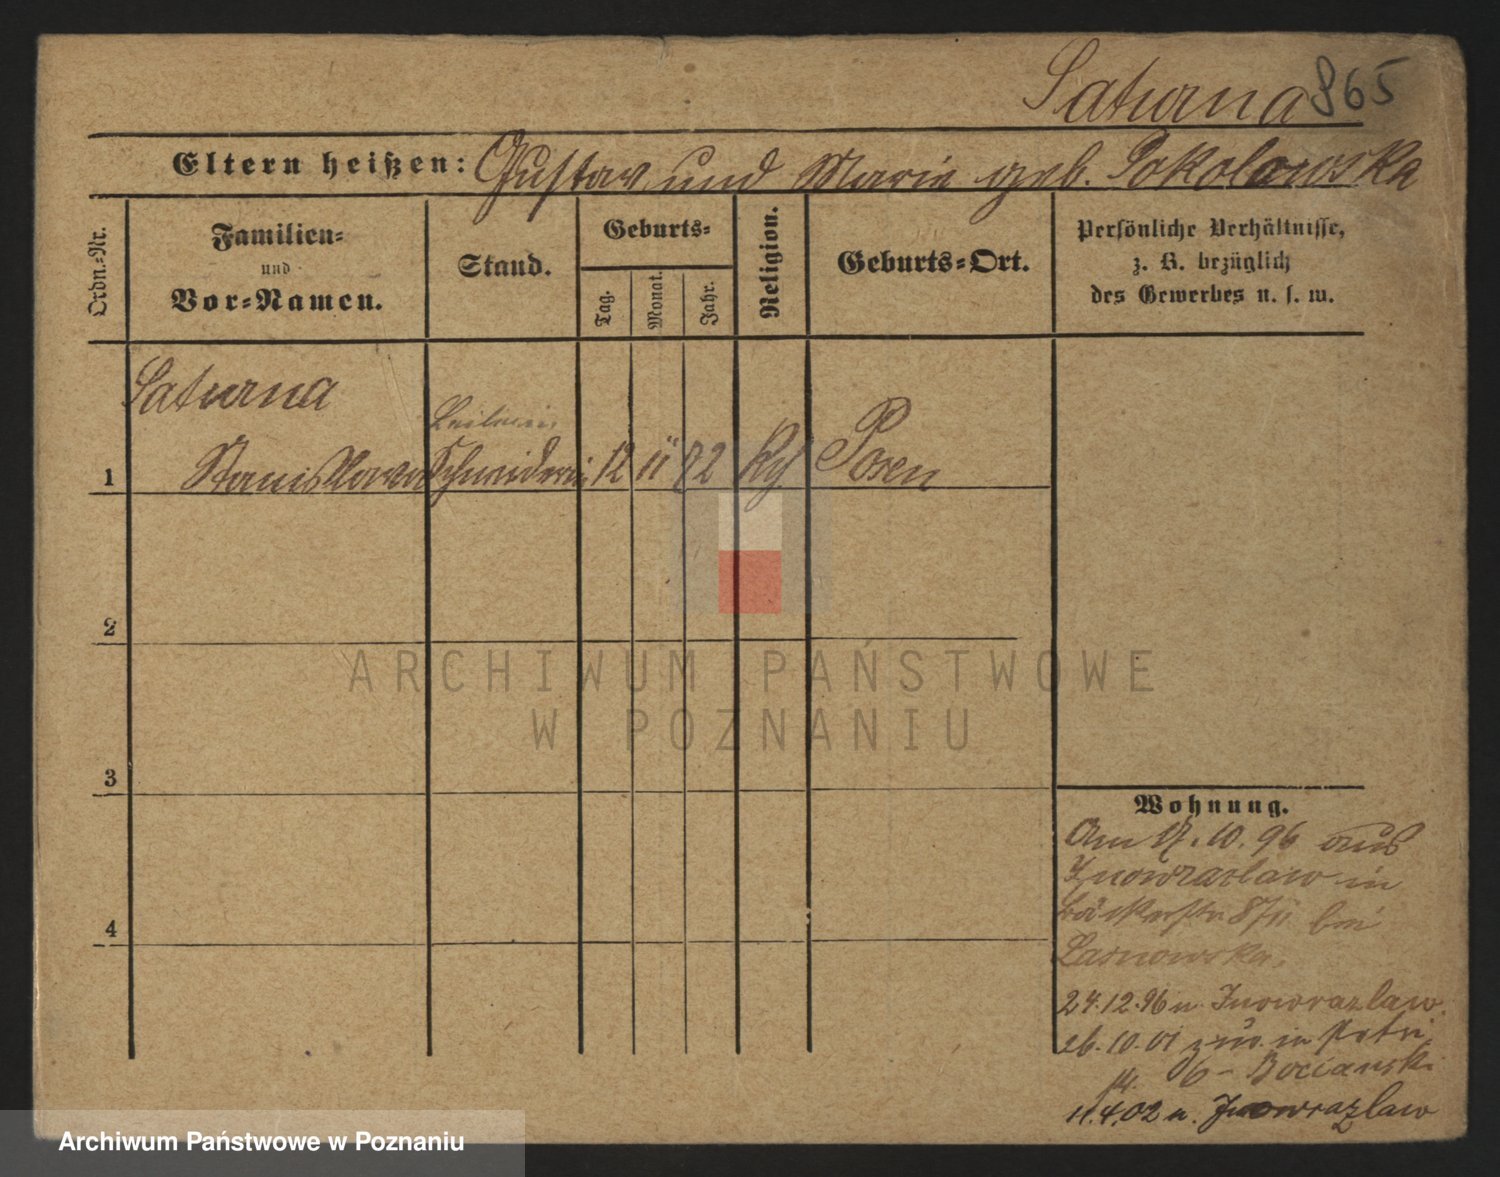 Saturna 865
Eltern heißen: Gustav und Marie geb. Sokolowska
Ordn.-Nr.
Familien-
und
Vor-Namen.
Stand.
Geburts-
Tag.
Monat.
Jahr.
Religion.
Geburts-Ort.
Persönliche Verhältnisse,
z. B. bezüglich
des Gewerbes u. s. w.
Saturna
1 Stanislawa Schneiderin 12 11 72 Posen
2
3
4
ARCHIWUM PAŃSTWOWE
W POZNANIU
Wohnung.
Am 17.10.96 aus
Inowrazlaw in
Bäckerstr 8/II bei
24.12.96 n. Inowrazlaw
26.10.01 in Petri
6 - Bocianski
11.4.02 n. Inowrazlaw
Archiwum Państwowe w Poznaniu